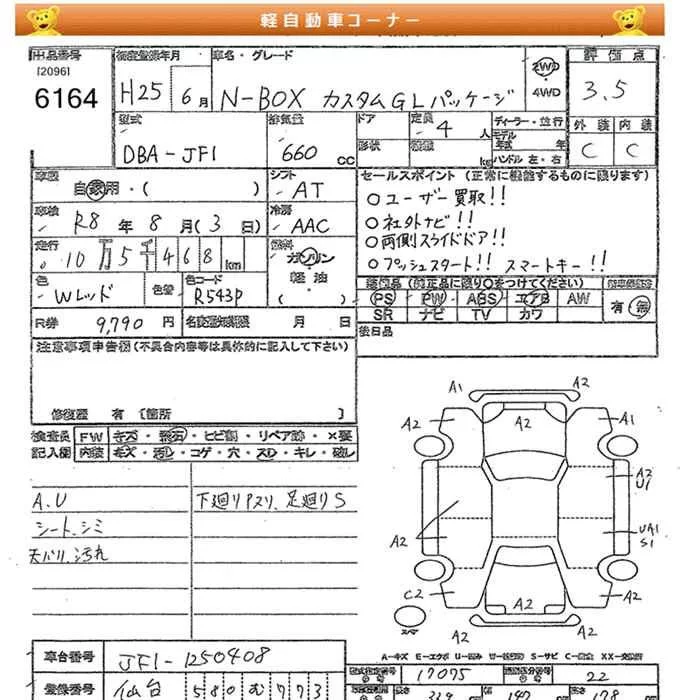 軽自動車コーナー
出品番号
[2096]
6164
初度登録年月
H25 6月
車名・グレード
N-BOX カスタムGLパッケージ
2WD
4WD
評価点
3.5
外装 内装
C C
型式
DBA-JF1
排気量
660 cc
ドア
形状
定員
4 人
積載
kg
ディーラー・並行
モデル年式 年
ハンドル 左・右
車歴
自家用・( )
シフト
AT
車検
R8年8月(3日)
冷房
AAC
走行
10万5千468km
燃料
ガソリン
軽油
( )
色
Wレッド
色替
色コード
R543P
R券 9,790 円
名変期限 月 日
セールスポイント (正常に機能するものに限ります)
○ユーザー買取!!
○社外ナビ!!
○両側スライドドア!!
○プッシュスタート!! スマートキー!!
装備品(純正品に限り○をつけてください)
PS PW ABS エアB AW
SR ナビ TV カワ
有・無
後日品
注意事項申告欄(不具合内容等は具体的に記入して下さい)
修復歴 有〔箇所 〕
検査員記入欄
FW キズ・飛石・ヒビ割・リペア跡・×要
内装 キズ・汚レ・コゲ・穴・スレ・キレ・破レ
A.U
シート、シミ
天バリ、汚れ
下廻りPスリ、足廻りS
A1 A2
A2 A2 A1
A2
U1
A2
UA1
S1
C2 A2 A2
A2
スペア
A-キズ E-エクボ U-凹み W-波修跡 S-サビ C-腐食 XX-交換済
車台番号
JF1-1250408
登録番号
仙台 580 む 773
型式指定番号
17075
類別区分番号
22
長さ